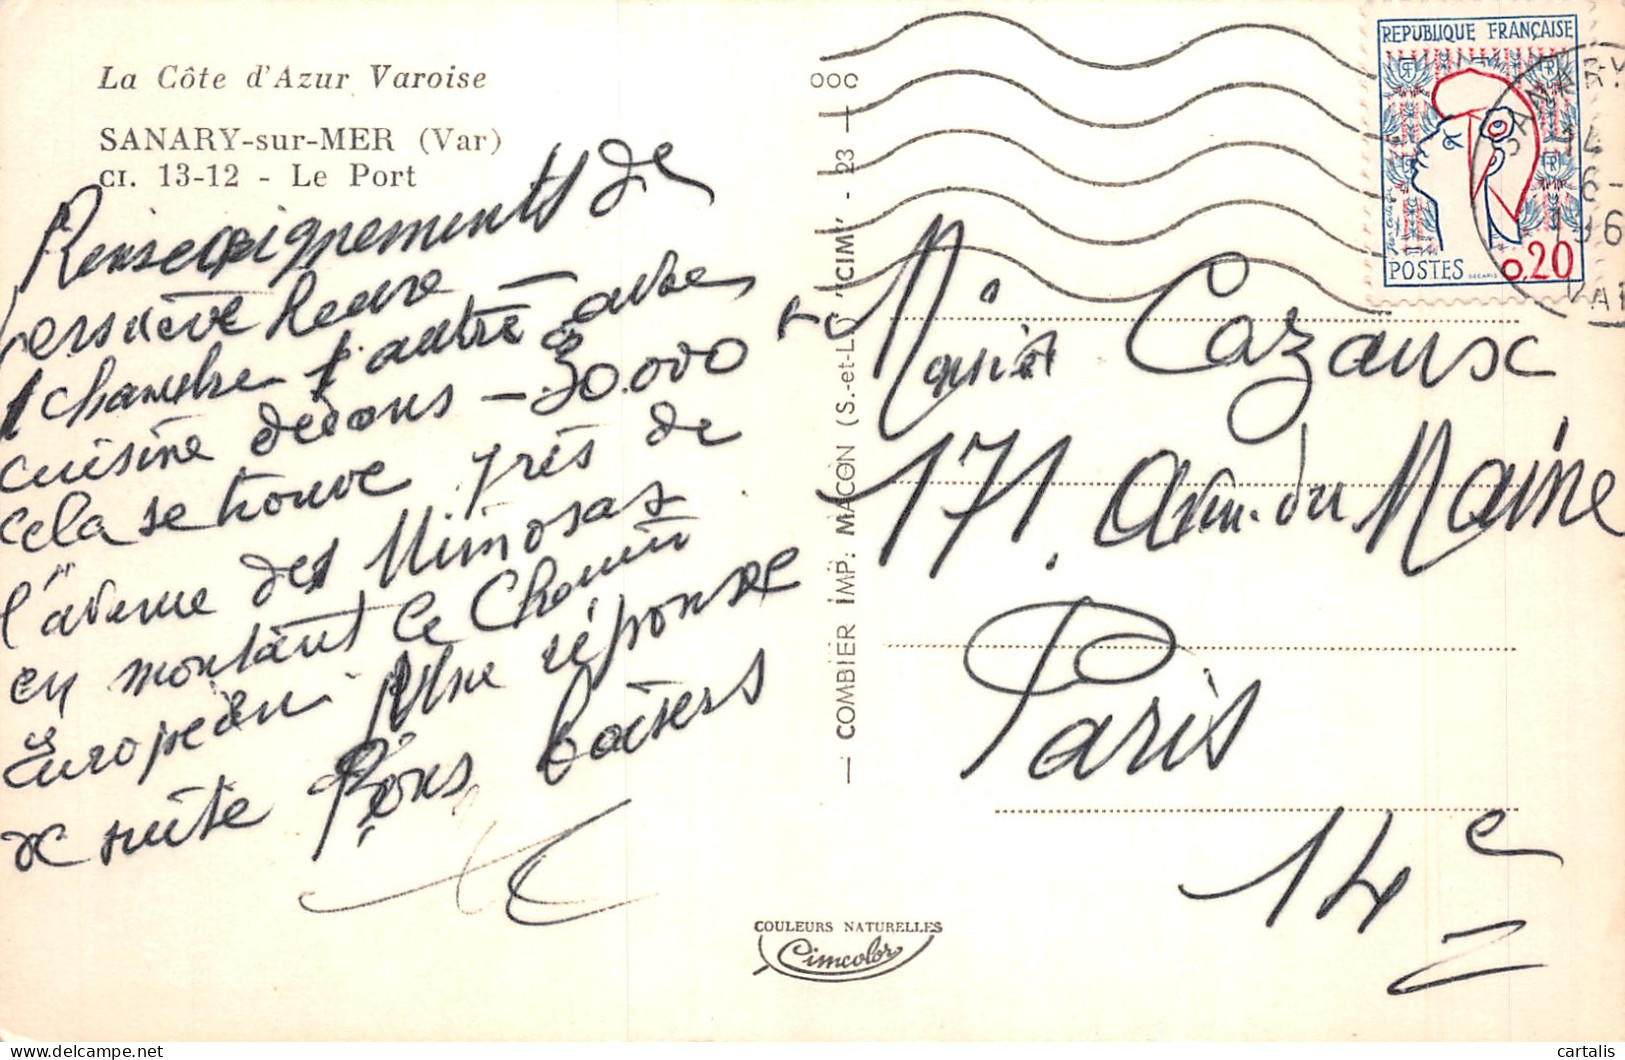 La Côte d'Azur Varoise
SANARY-sur-MER (Var)
CI. 13-12 - Le Port
Renseignements de
heure
1 chambre 1 autre avec
cuisine dedans - 30.000
cela se trouve près de
l'avenue des Mimosas
en montant ce Chemin
Européen Une réponse
de suite Bons baisers
— COMBIER IMP. MACON (S.-et-L.) "CIM" - 23 —
REPUBLIQUE FRANÇAISE
POSTES 0,20
SANARY
14
6-
196
VAR
Cazaux
171. Aven. du Maine
Paris
14e
COULEURS NATURELLES
Cimcolor
cartalis